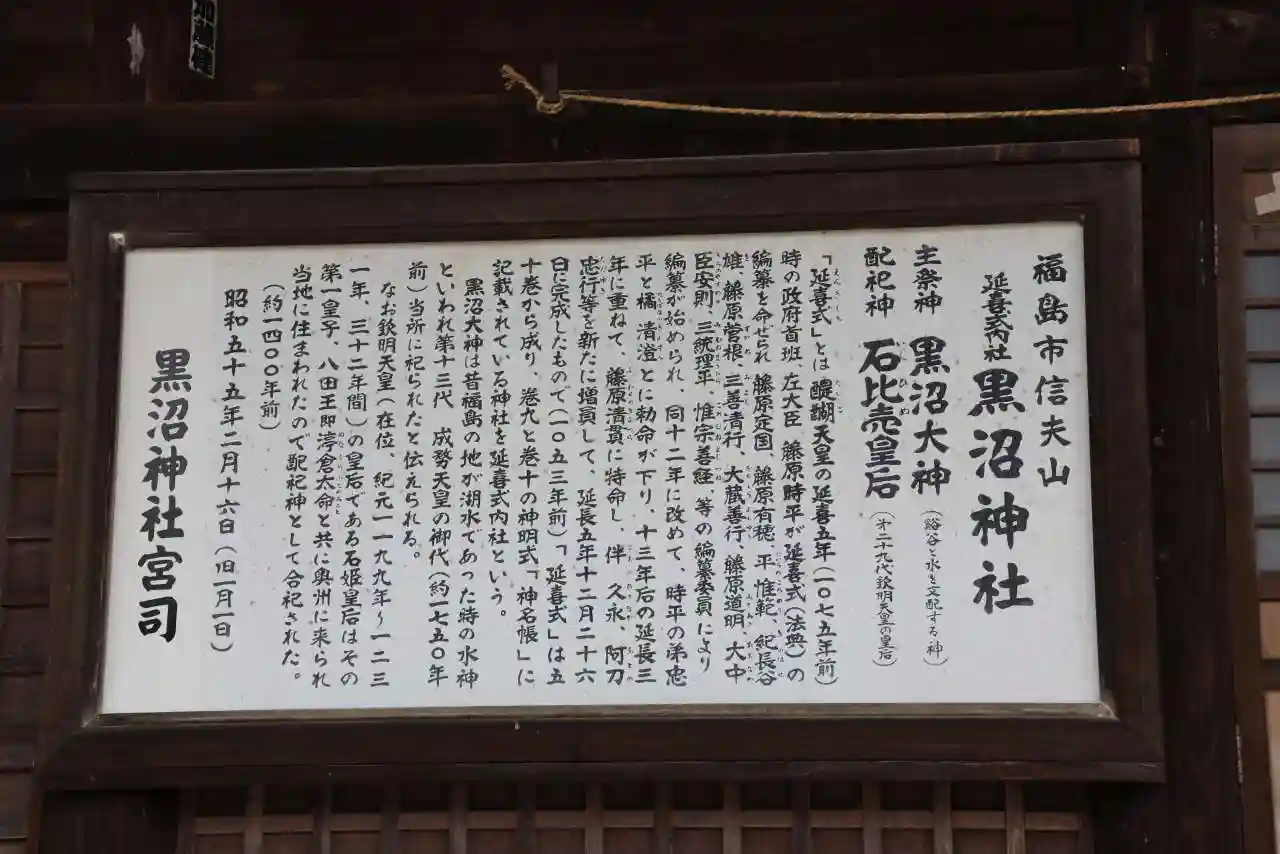 福島市信夫山
延喜式内社 黒沼神社
主祭神 黒沼大神 (谿谷と水を支配する神)
配祀神 石比売皇后 (第二十九代欽明天皇の皇后)
「延喜式」とは 醍醐天皇の延喜五年(一〇七五年前)
時の政府首班 左大臣 藤原時平が延喜式(法典)の
編纂を命せられ 藤原定国、藤原有穂、平 惟範、紀長谷
雄、藤原菅根、三善清行、大蔵善行、藤原道明、大中
臣安則、三統理平、惟宗善経、等の編纂委員により
編纂が始められ、同十二年に改めて、時平の弟忠
平と橘 清澄とに勅命が下り、十三年后の延長三
年に重ねて、藤原清貫に特命し、伴 久永、阿刀
忠行等を新たに増員して、延長五年十二月二十六
日に完成したもので(一〇五三年前)「延喜式」は五
十巻から成り、巻九と巻十の神明式「神名帳」に
記載されている神社を延喜式内社という。
黒沼大神は昔福島の地が湖水であった時の水神
といわれ第十三代 成務天皇の御代(約一七五〇年
前)当所に祀られたと伝えられる。
なお欽明天皇(在位、紀元一一九九年～一二三
一年、三十二年間)の皇后である石姫皇后はその
第一皇子、八田王即渟倉太命と共に奥州に来られ
当地に住まわれたので配祀神として合祀された。
(約一四〇〇年前)
昭和五十五年二月十六日(旧一月一日)
黒沼神社宮司